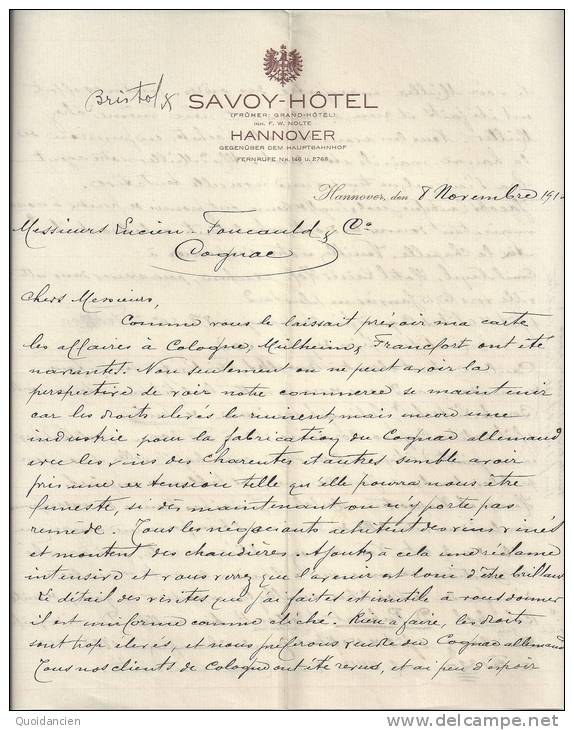 Bristol &
SAVOY-HÔTEL
(FRÜHER: GRAND-HÔTEL)
INH. F. W. NOLTE
HANNOVER
GEGENÜBER DEM HAUPTBAHNHOF
FERNRUFE No. 146 U. 2768
Hannover, den 8 Novembre 191
Messieurs Lucien-Foucauld & Co
Cognac
Chers Messieurs,
Comme vous le laissait prévoir ma carte
les affaires à Cologne, Mülheim, Francfort ont été
navrantes. Non seulement on ne peut avoir la
perspective de voir notre commerce se maintenir
car les droits élevés le ruinent, mais encore une
industrie pour la fabrication du Cognac allemand
avec les vins des Charentes et autres semble avoir
pris une extension telle qu'elle pourra nous être
funeste, si dès maintenant on n'y porte pas
remède. Tous les négociants achètent des vins vinés
et montent des chaudières. Ajoutez à cela une réclame
intensive et vous verrez que l'avenir est loin d'être brillant
Le détail des visites que j'ai faites est inutile à vous donner
il est uniforme comme cliché. Rien à faire, les droits
sont trop élevés, et nous préférons vendre du Cognac allemand
Tous nos clients de Cologne ont été revus, et ai peu d'espoir
Quoidancien
http://www.delcampe.net